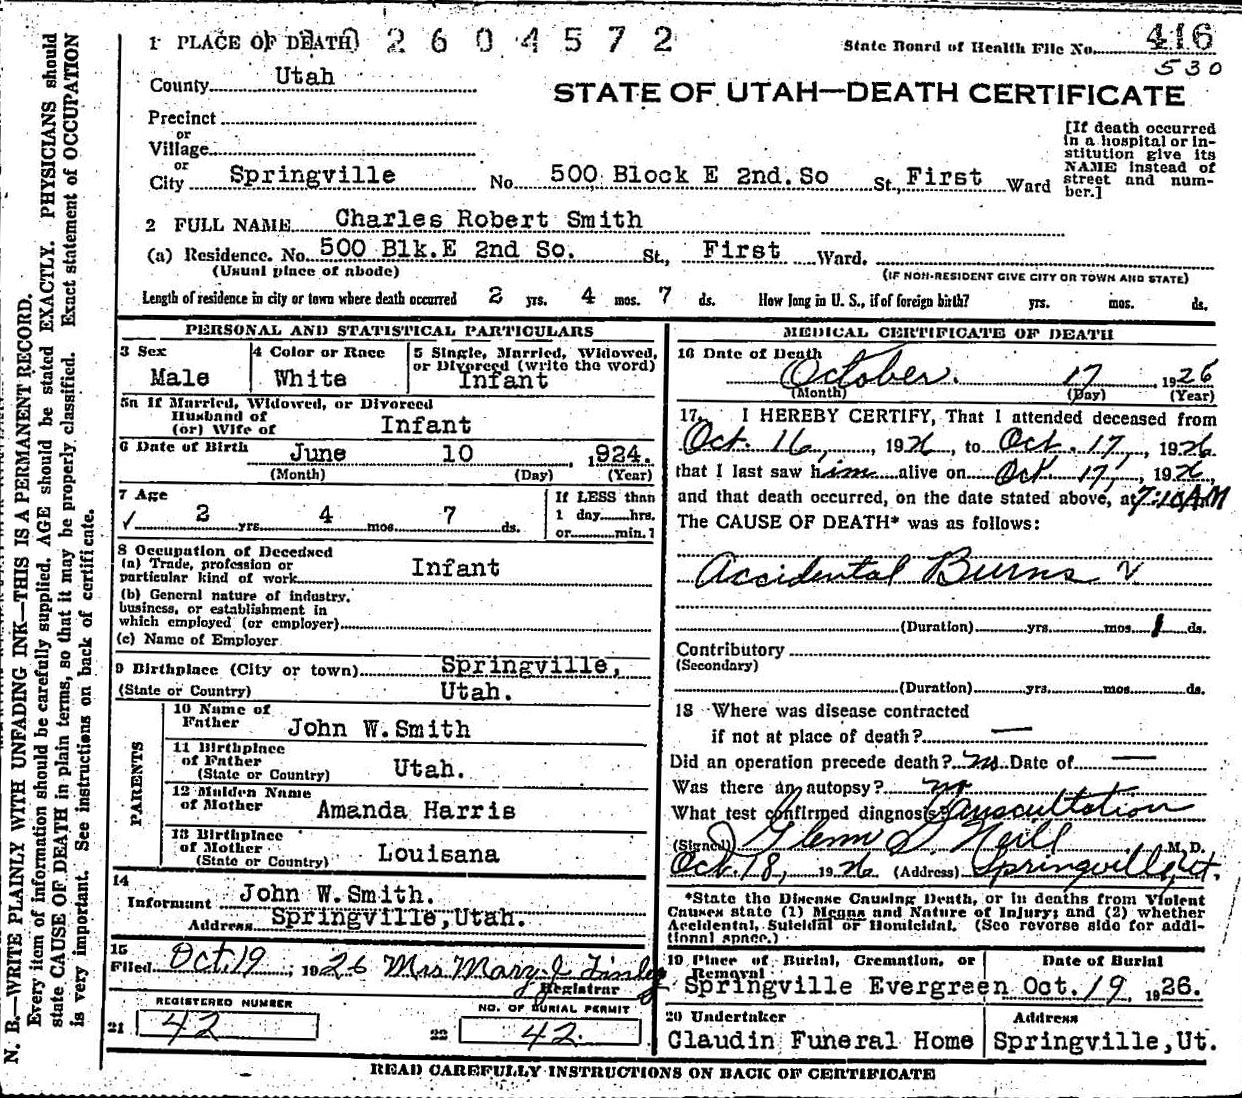 1 PLACE OF DEATH 2 6 0 4 5 7 2
State Board of Health File No. 416
530
County Utah
STATE OF UTAH—DEATH CERTIFICATE
Precinct
or
Village
or
City Springville No. 500 Block E 2nd. So St., First Ward
[If death occurred in a hospital or institution give its NAME instead of street and number.]
2 FULL NAME Charles Robert Smith
(a) Residence. No. 500 Blk. E 2nd So. St., First Ward.
(Usual place of abode) (IF NON-RESIDENT GIVE CITY OR TOWN AND STATE)
Length of residence in city or town where death occurred 2 yrs. 4 mos. 7 ds. How long in U. S., if of foreign birth? yrs. mos. ds.
PERSONAL AND STATISTICAL PARTICULARS
3 Sex Male
4 Color or Race White
5 Single, Married, Widowed, or Divorced (write the word) Infant
5a If Married, Widowed, or Divorced
Husband of
(or) Wife of Infant
6 Date of Birth June 10, 1924.
(Month) (Day) (Year)
7 Age 2 yrs. 4 mos. 7 ds.
If LESS than
1 day......hrs.
or......min.?
8 Occupation of Deceased
(a) Trade, profession or
particular kind of work Infant
(b) General nature of industry,
business, or establishment in
which employed (or employer)
(c) Name of Employer
9 Birthplace (City or town) Springville,
(State or Country) Utah.
PARENTS
10 Name of
Father John W. Smith
11 Birthplace
of Father
(State or Country) Utah.
12 Maiden Name
of Mother Amanda Harris
13 Birthplace
of Mother
(State or Country) Louisana
14
Informant John W. Smith.
Address Springville, Utah.
15
Filed Oct. 19, 1926 Mrs Mary J
Registrar
REGISTERED NUMBER
21 42
NO. OF BURIAL PERMIT
22 42.
MEDICAL CERTIFICATE OF DEATH
16 Date of Death
October. 17 1926
(Month) (Day) (Year)
17. I HEREBY CERTIFY, That I attended deceased from
Oct. 16, 1926, to Oct. 17, 1926.
that I last saw him alive on Oct. 17, 1926,
and that death occurred, on the date stated above, at 7:10 A.M
The CAUSE OF DEATH* was as follows:
Accidental Burns
(Duration) yrs. mos. 1 ds.
Contributory
(Secondary)
(Duration) yrs. mos. ds.
18 Where was disease contracted
if not at place of death? —
Did an operation precede death? no Date of —
Was there an autopsy? no
What test confirmed diagnosis? Auscultation
(Signed) Glenn S. Neill M. D.
Oct. 18, 1926 (Address) Springville, Ut.
*State the Disease Causing Death, or in deaths from Violent
Causes state (1) Means and Nature of Injury; and (2) whether
Accidental, Suicidal or Homicidal. (See reverse side for addi-
tional space.)
19 Place of Burial, Cremation, or
Removal
Springville Evergreen
Date of Burial
Oct. 19, 1926.
20 Undertaker
Claudin Funeral Home
Address
Springville, Ut.
READ CAREFULLY INSTRUCTIONS ON BACK OF CERTIFICATE
N. B.—WRITE PLAINLY WITH UNFADING INK—THIS IS A PERMANENT RECORD.
Every item of information should be carefully supplied. AGE should be stated EXACTLY. PHYSICIANS should
state CAUSE OF DEATH in plain terms, so that it may be properly classified. Exact statement of OCCUPATION
is very important. See instructions on back of certificate.